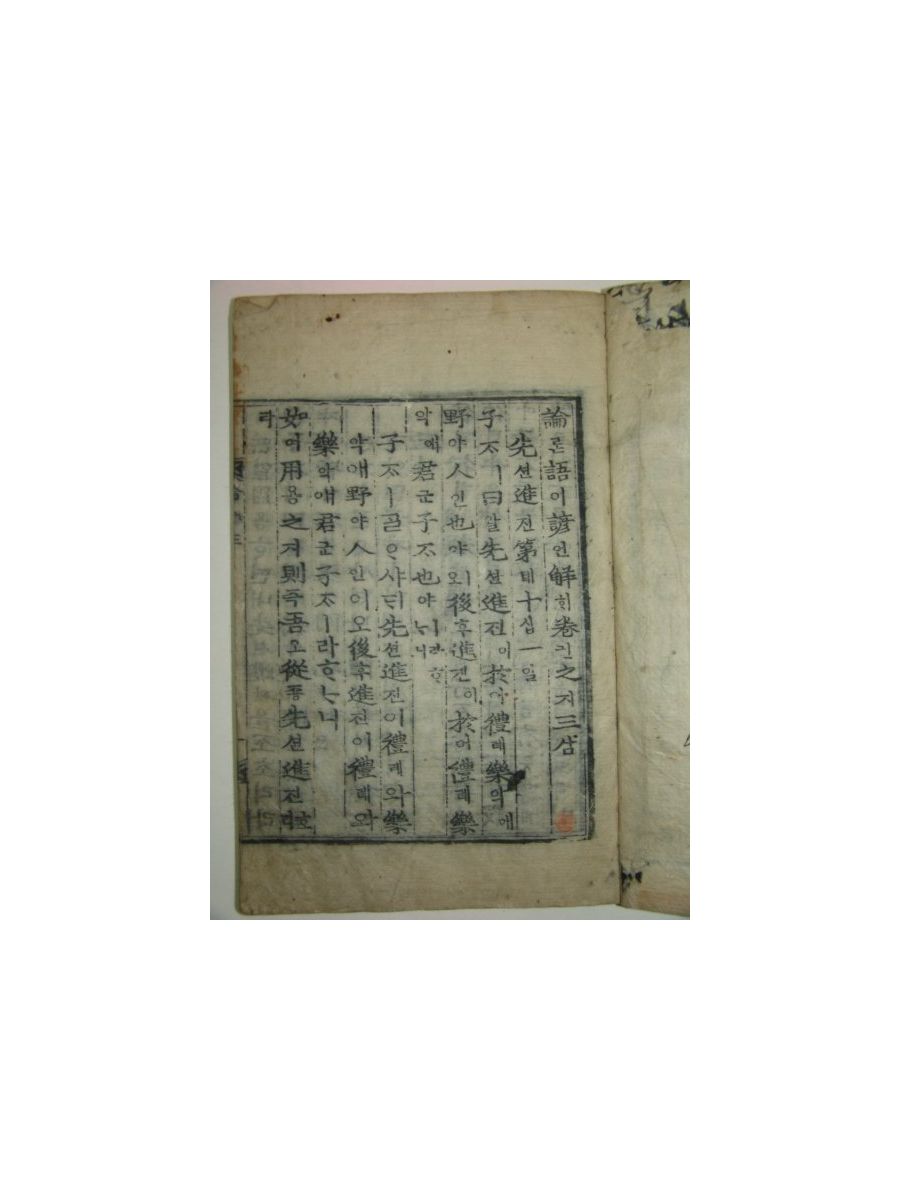 論론語어諺언解ᄒᆡ卷권之지三삼
先션進진第뎨十십一일
子ᄌᆞㅣ曰왈先션進진이於어禮례樂악에
野야人인也야ㅣ오後후進진이於어禮례樂
악애君군子ᄌᆞ也야ㅣ라ᄒᆞᄂᆞ니
子ᄌᆞㅣᄀᆞᆯᄋᆞ샤ᄃᆡ先션進진이禮례와樂
악애野야人인이오後후進진이禮례와
樂악애君군子ᄌᆞㅣ라ᄒᆞᄂᆞ니
如여用용之지則즉吾오從죵先션進진호리
라